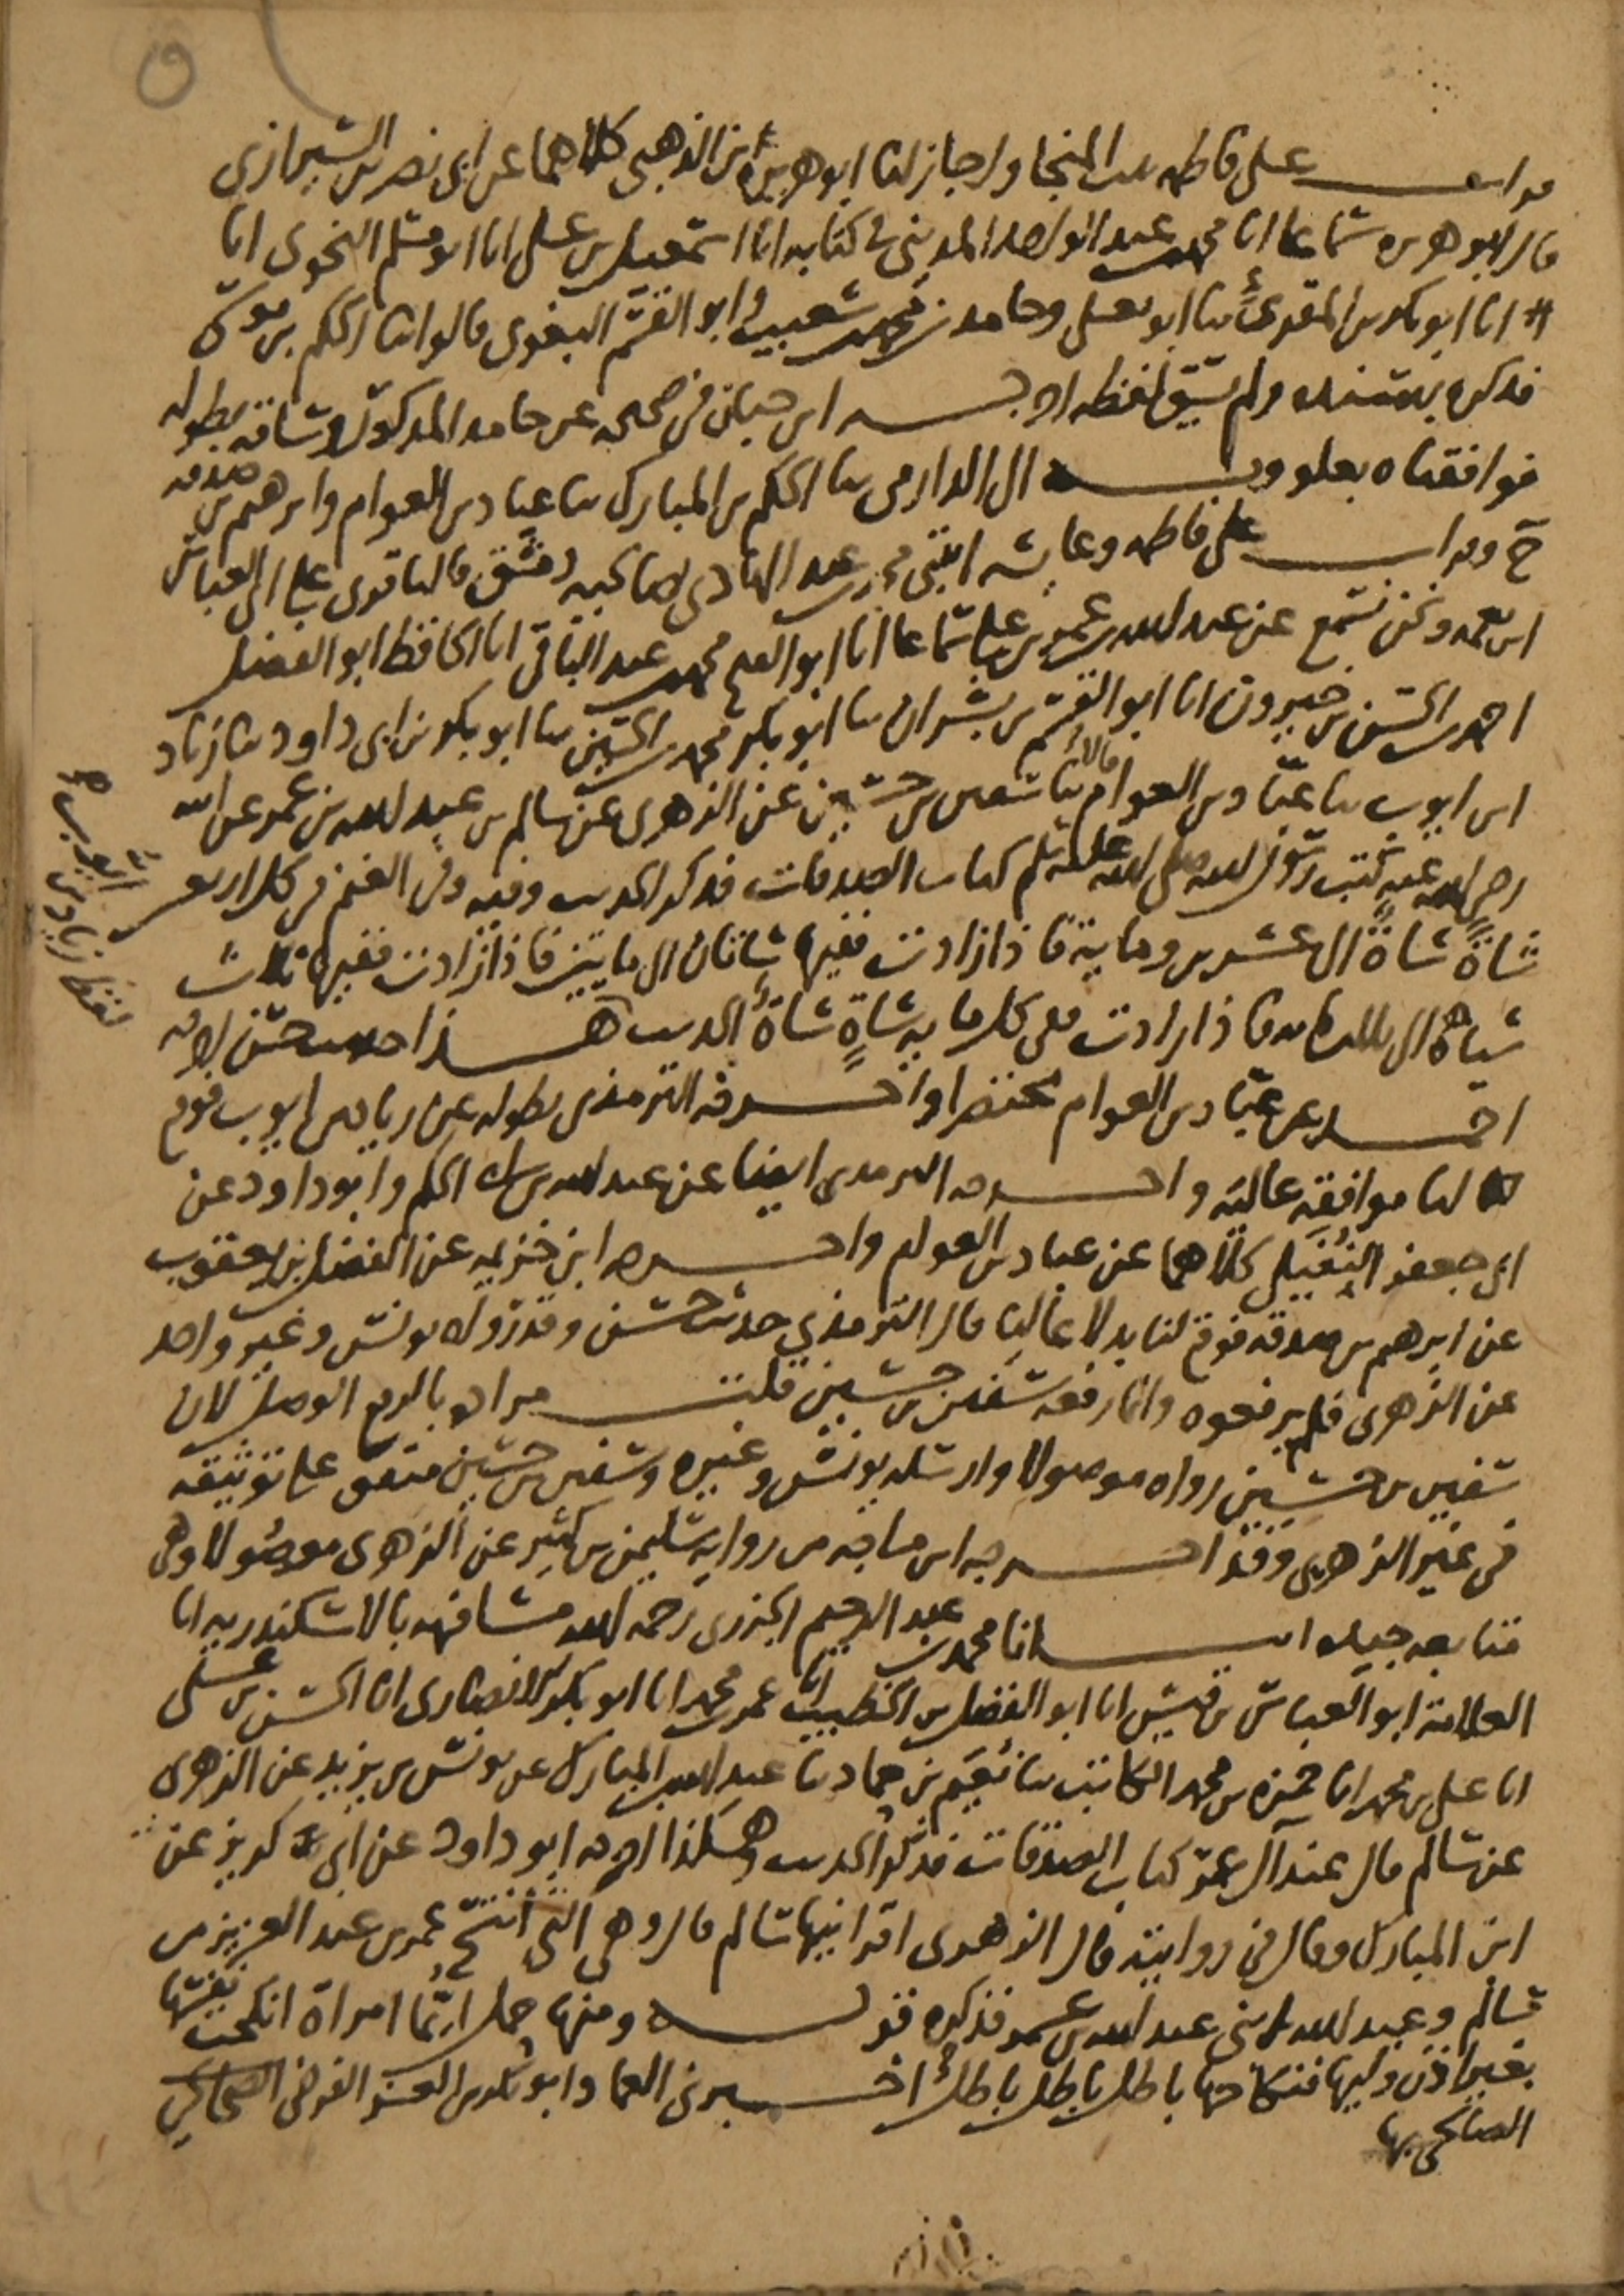 قرات على فاطمه بنت المنجا واجاز لنا ابو هريرة بن الذهبي كلاهما عن ابي نصر بن الشيرازي
قال ابو هريره سماعا انا محمد بن عبد الواحد المديني في كتابه انا اسمعيل بن علي انا ابو مسلم النحوي انا
انا ابو بكر بن المقرئ ثنا ابو يعلى وحامد بن محمد بن شعيب وابو القسم البغوي قالوا ثنا الحكم بن موسى
فذكره بسنده ولم يسق لفظه اخرجه ابن حبان في صحيحه عن حامد المذكور وساقه بطوله
فوافقناه بعلو وبه الى الدارمي ثنا الحكم بن المبارك ثنا عباد بن العوام وابرهيم بن صدقه
ح وقرات على فاطمه وعايشه ابنتي محمد بن عبد الهادي بصالحية دمشق قالتا قرئ على ابي العباس
ابن نعمه ونحن نسمع عن عبد الله بن عمر بن علي سماعا انا ابو الفتح محمد بن عبد الباقي انا الحافظ ابو الفضل
احمد بن الحسن بن خيرون انا ابو القسم بن بشران ثنا ابو بكر محمد بن الحسين ثنا ابو بكر بن ابي داود ثنا زياد
ابن ايوب ثنا عباد بن العوام قالا ثنا سفين بن حسين عن الزهري عن سالم بن عبد الله بن عمر عن ابيه
رضي الله عنه كتب رسول الله صلى الله عليه وسلم كتاب الصدقات فذكر الحديث وفيه وفي الغنم في كل اربعين
شاةً شاةٌ الى عشرين وماية فاذا زادت ففيها شاتان الى مايتين فاذا زادت ففيها ثلاث
شياه الى ثلثمايه فاذا زادت ففي كل مايه شاةٍ شاةٌ الحديث هذا حديث حسن اخرجه
احمد عن عباد بن العوام مختصرا واخرجه الترمذي بطوله عن زياد بن ايوب فوقع
لنا موافقة عالية واخرجه الترمذي ايضا عن عبد الله بن الحكم وابو داود عن
ابي جعفر النفيلي كلاهما عن عباد بن العوام واخرجه ابن خزيمه عن الفضل بن يعقوب
عن ابرهيم بن صدقه فوقع لنا بدلا عاليا قال الترمذي حديث حسن وقد رواه يونس وغير واحد
عن الزهري فلم يرفعوه وانما رفعه سفين بن حسين قلت مراده بالرفع الوصل لان
سفين بن حسين رواه موصولا وارسله يونس وغيره وسفين بن حسين متفق على توثيقه
في غير الزهري وقد اخرجه ابن ماجه من رواية سليمن بن كثير عن الزهري موصولا وهي
متابعه جيده انا محمد بن عبد الرحيم الجزري رحمه الله مشافهه بالاسكندريه انا
العلامة ابو العباس بن قيس انا ابو الفضل بن الخطيب انا عمر بن محمد انا ابو بكر الانصاري انا الحسن بن علي
انا علي بن محمد انا حمزه بن محمد الكاتب ثنا نعيم بن حماد ثنا عبد الله بن المبارك عن يونس بن يزيد عن الزهري
عن سالم قال عند آل عمر كتاب الصدقات فذكر الحديث وهكذا اخرجه ابو داود عن ابي كريب عن
ابن المبارك وقال في روايته قال الزهري اقرانيها سالم قال وهي التي انتسخ عمر بن عبد العزيز من
سالم وعبد الله ابني عبد الله بن عمر فذكره قوله ومنها حمل ايما امراة انكحت نفسها
بغير اذن وليها فنكاحها باطل باطل باطل اخبرني العماد ابو بكر بن العز الفرضي الصالحي
الصالحي بها
لفظ زياد بن ايوب